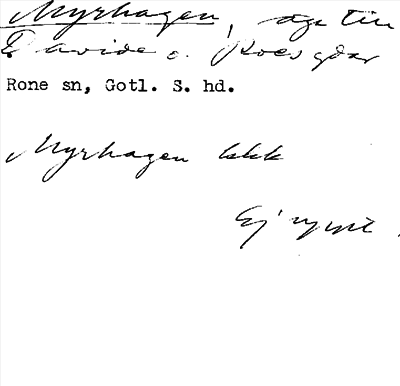 Myrhagen, äga till
Davide o. Roes gdar
Rone sn, Gotl. S. hd.
Myrhagen bkk
Ej nytt.